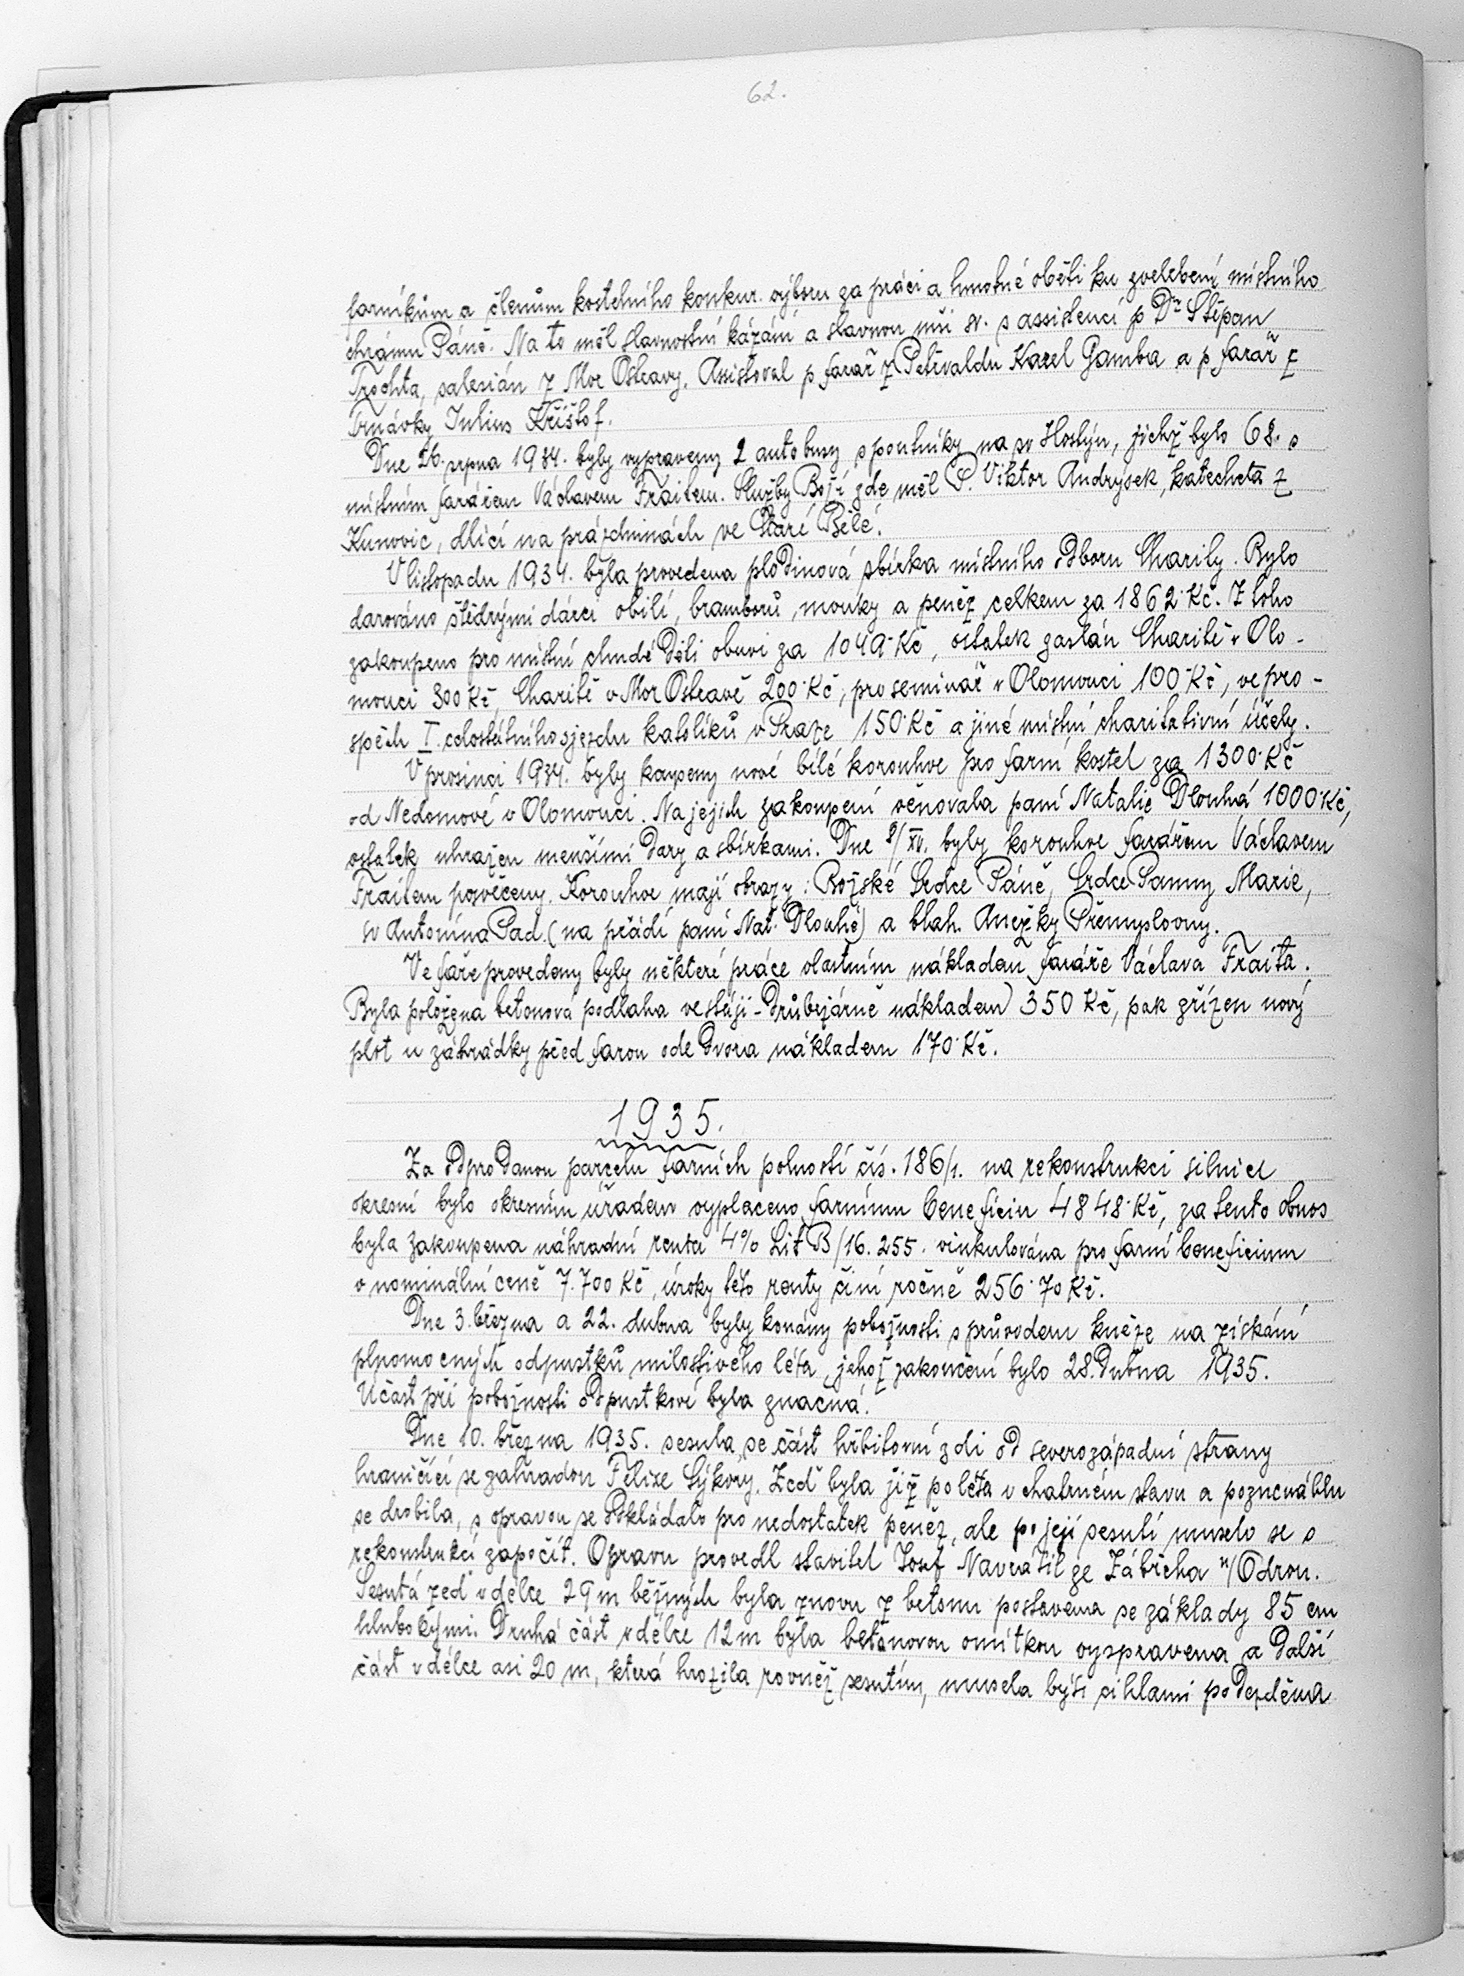 62.
farníkům a členům kostelního konkur. výboru za práci a hmotné oběti ku zvelebení místního
chrámu Páně. Na to měl slavnostní kázání a slavnou mši sv. s assistencí p Dr Štěpán
Trochta, salesián z Mor Ostravy. Assistoval p farář z Petřvaldu Karel Gamba a p farář z
Trnávky Julius Kříštof.
Dne 26. srpna 1934. byly vypraveny 2 autobusy s poutníky na sv Hostýn, jichž bylo 68. s
místním farářem Václavem Fraitem. Služby Boží zde měl P. Viktor Andrýsek, katecheta z
Kunovic, dlící na prázdninách ve Staré Bělé.
V listopadu 1934. byla provedena plodinová sbírka místního odboru Charity. Bylo
darováno štědrými dárci obilí, bramborů, mouky a peněz celkem za 1862·Kč. Z toho
zakoupeno pro místní chudé děti obuvi za 1049·Kč, ostatek zaslán Charitě v Olo-
mouci 300 Kč, Charitě v Mor Ostravě 200·Kč, pro seminář v Olomouci 100·Kč, ve pro-
spěch I. celostátního sjezdu katolíků v Praze 150·Kč a jiné místní charitativní účely.
V prosinci 1934. byly koupeny nové bílé korouhve pro farní kostel za 1300·Kč
od Nedomové v Olomouci. Na jejich zakoupení věnovala paní Natalie Dlouhá 1000·Kč,
ostatek uhražen menšími dary a sbírkami. Dne 8/XII. byly korouhve farářem Václavem
Fraitem posvěceny. Korouhve mají obrazy: Božské Srdce Páně, Srdce Panny Marie,
sv Antonína Pad. (na přádí paní Nat. Dlouhé) a blah. Anežky Přemyslovny.
Ve faře provedeny byly některé práce vlastním nákladem faráře Václava Fraita.
Byla položena betonová podlaha ve stáji-drůbežárně nákladem 350 Kč, pak zřízen nový
plot u záhrádky před farou ode dvora nákladem 170·Kč.
1935.
Za odprodanou parcelu farních polností čís. 186/1. na rekonstrukci silnice
okresní bylo okresním úřadem vyplaceno farnímu beneficiu 4848·Kč, za tento obnos
byla zakoupena náhradní renta 4% Lit B/16.255. vinkulována pro farní beneficium
v nominální ceně 7.700 Kč, úroky této renty činí ročně 256·70 Kč.
Dne 3. března a 22. dubna byly konány pobožnosti s průvodem kněze na získání
plnomocných odpustků milostivého léta, jehož zakončení bylo 28. dubna 1935.
Účast při pobožnosti odpustkové byla značná.
Dne 10. března 1935. sesula se část hřbitovní zdi od severozápadní strany
hraničící se zahradou Felixe Sýkory. Zeď byla již po léta v chatrném stavu a poznenáhlu
se drobila, s opravou se odkládalo pro nedostatek peněz, ale po její sesutí muselo se s
rekonstrukcí započít. Opravu provedl stavitel Josef Navrátil ze Zábřeha n/Odrou.
Sesutá zeď v délce 29 m běžných byla znovu z betonu postavena se základy 85 cm
hlubokými. Druhá část v délce 12 m byla betonovou omítkou vyspravena a další
část v délce asi 20 m, která hrozila rovněž sesutím, musela býti cihlami podezděna